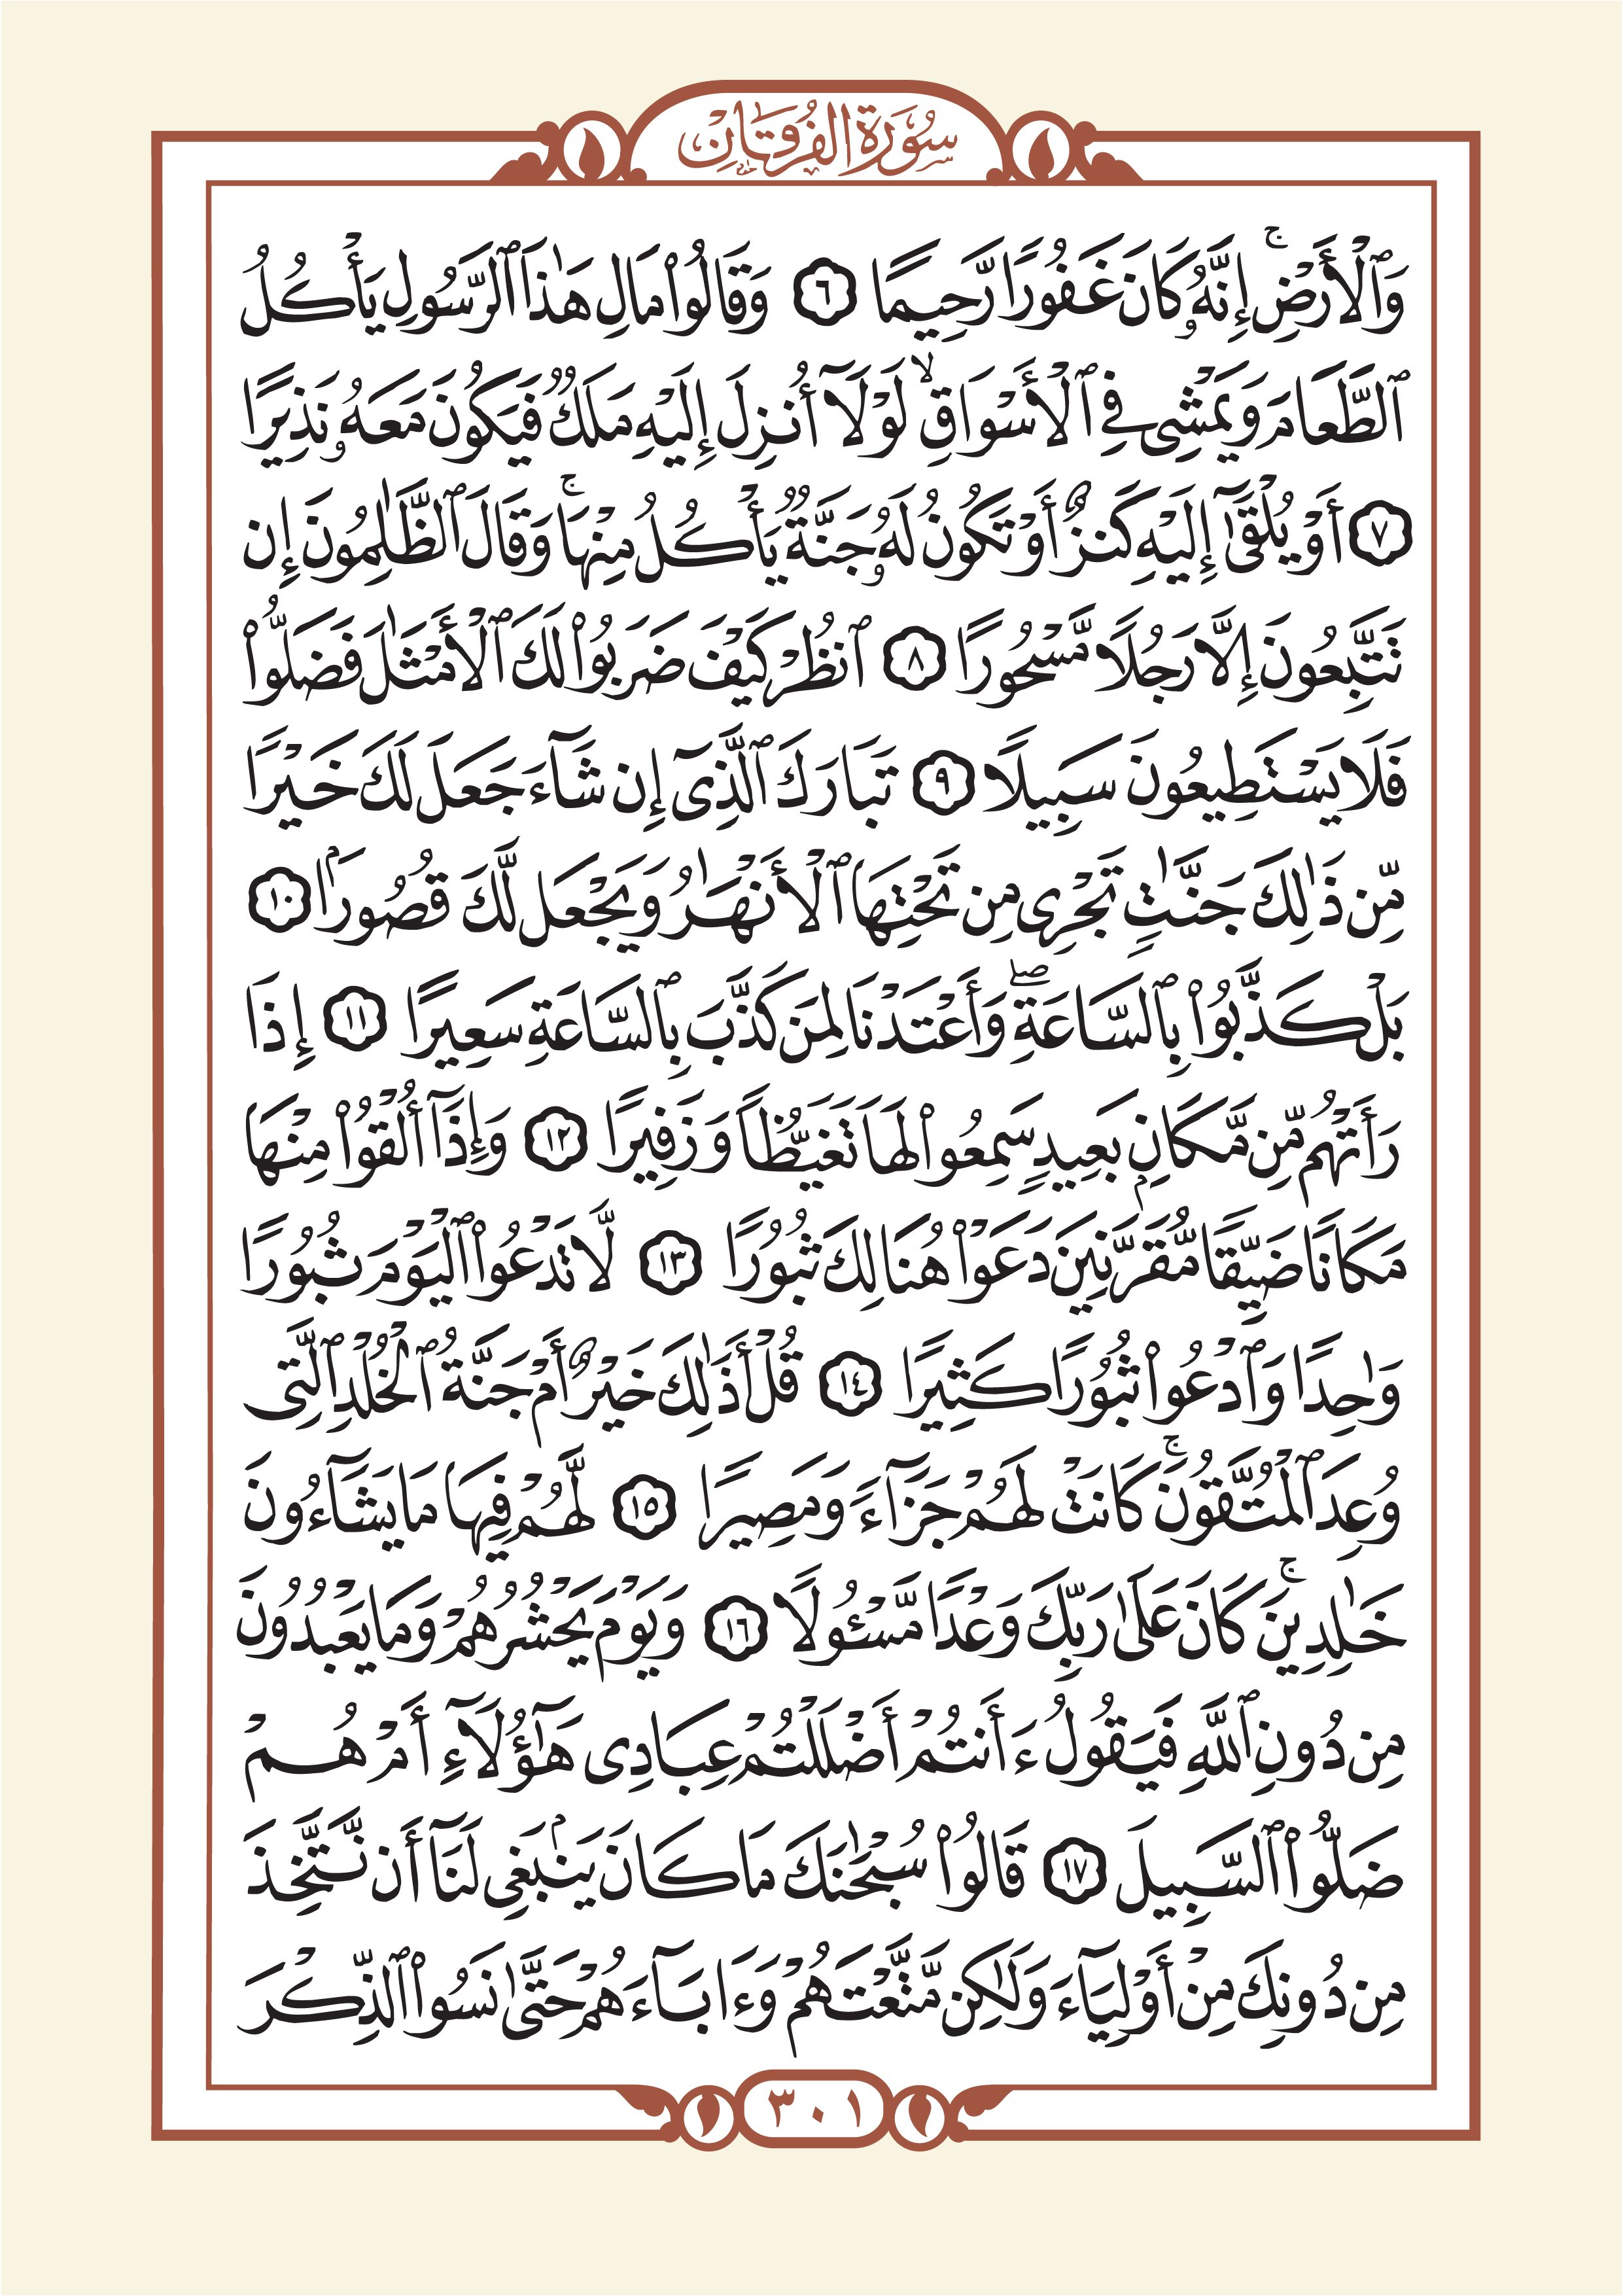 سُورَةُ الْفُرْقَانِ
وَٱلْأَرْضِۚ إِنَّهُۥ كَانَ غَفُورًا رَّحِيمًا ٦ وَقَالُوا۟ مَالِ هَٰذَا ٱلرَّسُولِ يَأْكُلُ
ٱلطَّعَامَ وَيَمْشِى فِى ٱلْأَسْوَاقِۙ لَوْلَآ أُنزِلَ إِلَيْهِ مَلَكٌ فَيَكُونَ مَعَهُۥ نَذِيرًا
٧ أَوْ يُلْقَىٰٓ إِلَيْهِ كَنزٌ أَوْ تَكُونُ لَهُۥ جَنَّةٌ يَأْكُلُ مِنْهَاۚ وَقَالَ ٱلظَّٰلِمُونَ إِن
تَتَّبِعُونَ إِلَّا رَجُلًا مَّسْحُورًا ٨ ٱنظُرْ كَيْفَ ضَرَبُوا۟ لَكَ ٱلْأَمْثَٰلَ فَضَلُّوا۟
فَلَا يَسْتَطِيعُونَ سَبِيلًا ٩ تَبَارَكَ ٱلَّذِىٓ إِن شَآءَ جَعَلَ لَكَ خَيْرًا
مِّن ذَٰلِكَ جَنَّٰتٍ تَجْرِى مِن تَحْتِهَا ٱلْأَنْهَٰرُ وَيَجْعَل لَّكَ قُصُورَۢا ١٠
بَلْ كَذَّبُوا۟ بِٱلسَّاعَةِۖ وَأَعْتَدْنَا لِمَن كَذَّبَ بِٱلسَّاعَةِ سَعِيرًا ١١ إِذَا
رَأَتْهُم مِّن مَّكَانِۭ بَعِيدٍ سَمِعُوا۟ لَهَا تَغَيُّظًا وَزَفِيرًا ١٢ وَإِذَآ أُلْقُوا۟ مِنْهَا
مَكَانًا ضَيِّقًا مُّقَرَّنِينَ دَعَوْا۟ هُنَالِكَ ثُبُورًا ١٣ لَّا تَدْعُوا۟ ٱلْيَوْمَ ثُبُورًا
وَٰحِدًا وَٱدْعُوا۟ ثُبُورًا كَثِيرًا ١٤ قُلْ أَذَٰلِكَ خَيْرٌ أَمْ جَنَّةُ ٱلْخُلْدِ ٱلَّتِى
وُعِدَ ٱلْمُتَّقُونَۚ كَانَتْ لَهُمْ جَزَآءً وَمَصِيرًا ١٥ لَّهُمْ فِيهَا مَا يَشَآءُونَ
خَٰلِدِينَۚ كَانَ عَلَىٰ رَبِّكَ وَعْدًا مَّسْـُٔولًا ١٦ وَيَوْمَ يَحْشُرُهُمْ وَمَا يَعْبُدُونَ
مِن دُونِ ٱللَّهِ فَيَقُولُ ءَأَنتُمْ أَضْلَلْتُمْ عِبَادِى هَٰٓؤُلَآءِ أَمْ هُمْ
ضَلُّوا۟ ٱلسَّبِيلَ ١٧ قَالُوا۟ سُبْحَٰنَكَ مَا كَانَ يَنۢبَغِى لَنَآ أَن نَّتَّخِذَ
مِن دُونِكَ مِنْ أَوْلِيَآءَ وَلَٰكِن مَّتَّعْتَهُمْ وَءَابَآءَهُمْ حَتَّىٰ نَسُوا۟ ٱلذِّكْرَ
٣٠١